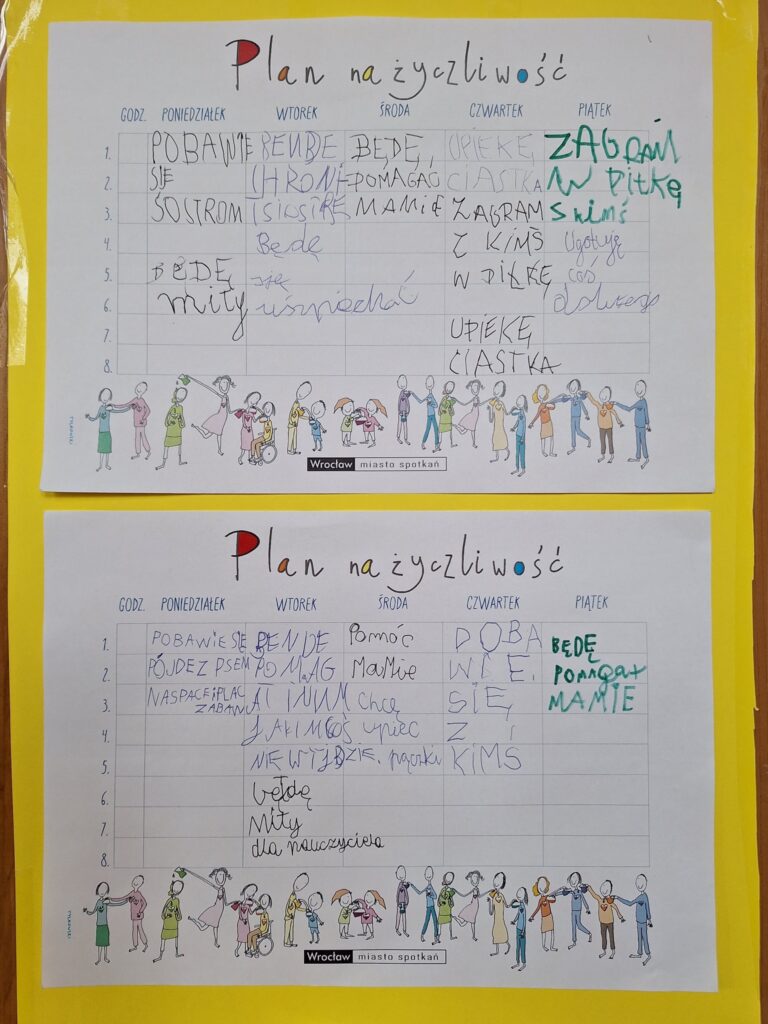 Plan na życzliwość
GODZ. PONIEDZIAŁEK WTOREK ŚRODA CZWARTEK PIĄTEK
1. POBAWIE BENDE BĘDĘ UPIEKĘ ZAGRAM
2. SIĘ CHRONI POMAGAĆ CIASTKA W PIŁKĘ
3. SOSTROM MAMIE ZAGRAM S KIMŚ
4. Będę Z KIMŚ Ugotuję
5. BĘDĘ się W PIŁKĘ coś
6. miły uśmiechać dobrego
7. UPIEKĘ
8. CIASTKA
Wrocław miasto spotkań
Plan na życzliwość
GODZ. PONIEDZIAŁEK WTOREK ŚRODA CZWARTEK PIĄTEK
1. POBAWIE SIĘ BENDE Pomóc DOBA BĘDĘ
2. PÓJDE Z PSEM POMAG MaMie WIĘ POMAGAŁ
3. NA SPACE I PLAC ZABAW AŁ INNM Chcę SIĘ MAMIE
4. JAKIM COŚ upiec Z
5. NIE WYJDZIE. pączki KIMS
6. będę
7. Miły
8. dla nauczyciela
Wrocław miasto spotkań